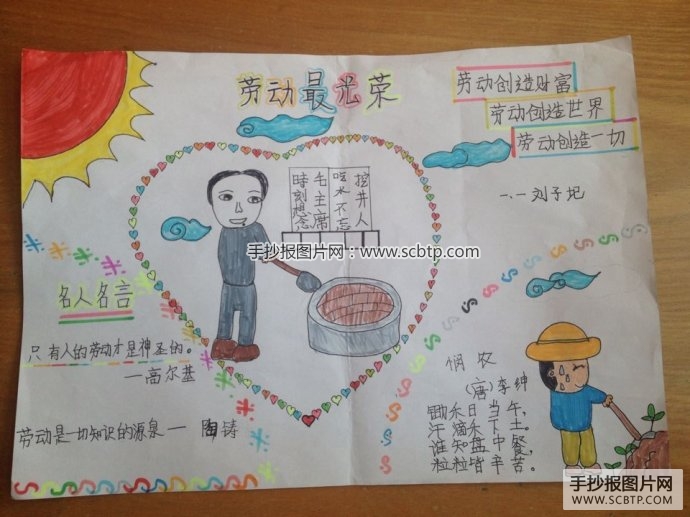 劳动最光荣
劳动创造财富
劳动创造世界
劳动创造一切
一.一刘子
時刻想念
毛主席
吃水不忘
挖井人
手抄报图片网：www.scbtp.com
名人名言
只有人的劳动才是神圣的。
—高尔基
劳动是一切知识的源泉一 陶铸
悯农
（唐）李绅
锄禾日当午，
汗滴禾下土。
谁知盘中餐，
粒粒皆辛苦。
手抄报图片网
WWW.SCBTP.COM